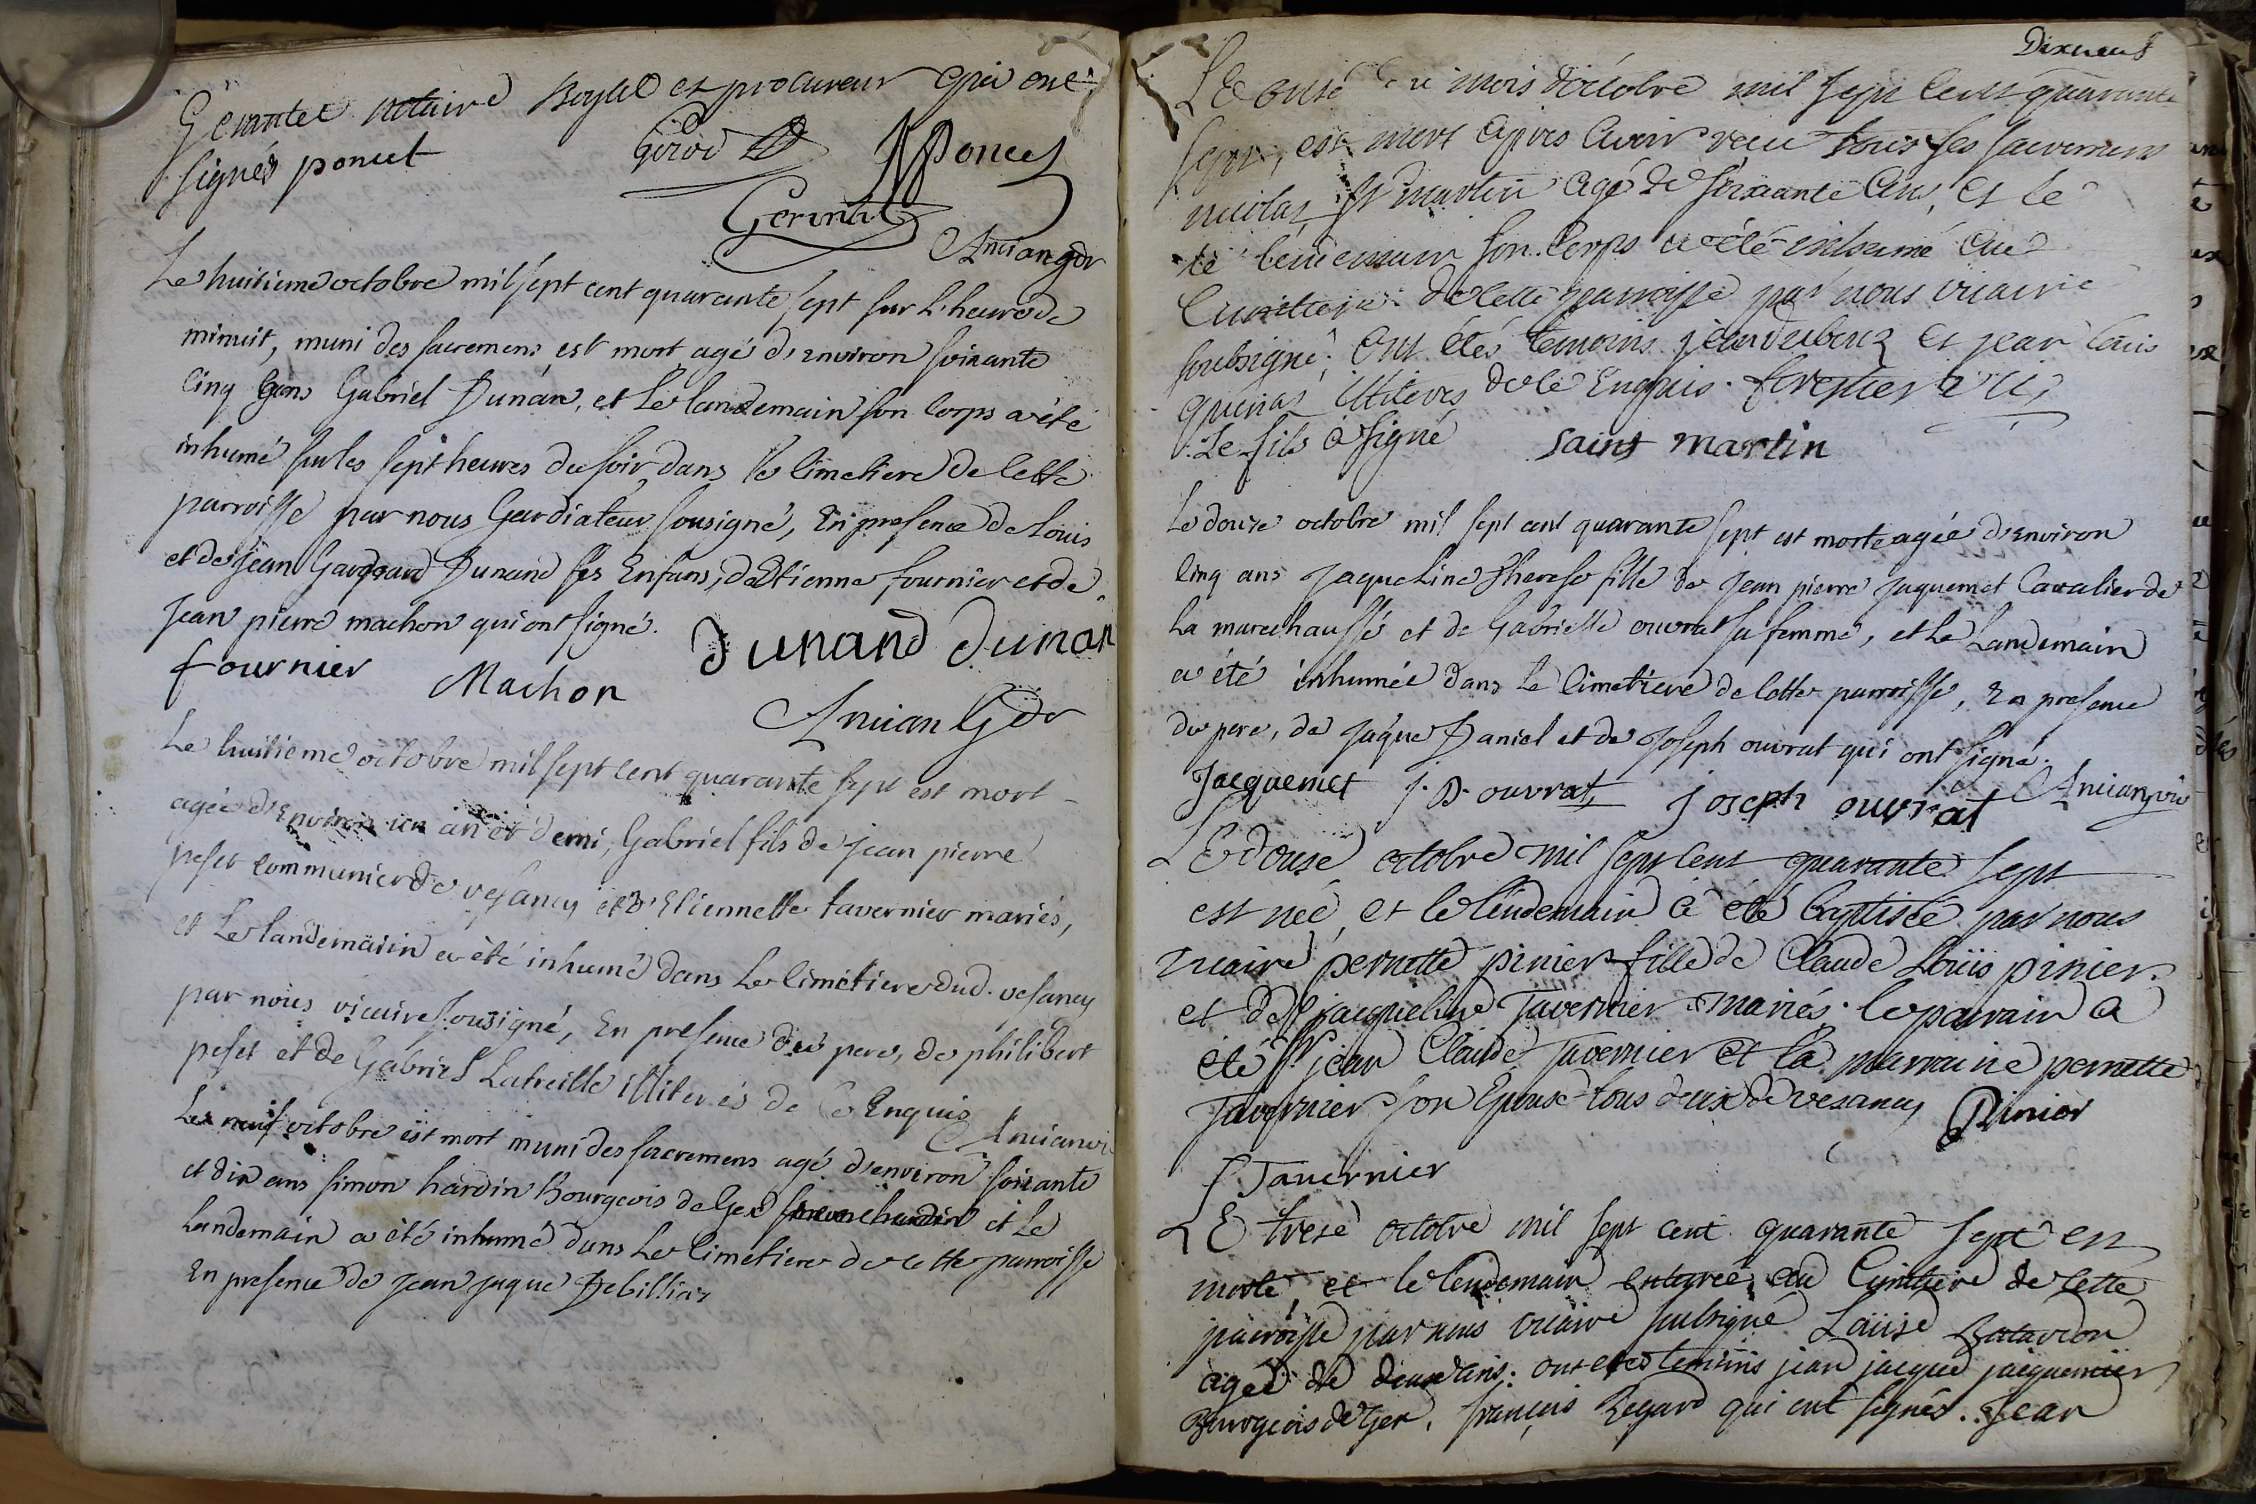 Gerintet notaire Royal et procureur qui ont
signés poncet Girod Poncet
Gerintet
Amian gdr
Le huitieme octobre mil sept cent quarante sept sur l'heure de
minuit, muni des sacremens est mort agé d'environ soixante
cinq ans Gabriel Dunan, et Le landemain son corps a été
inhumé sur les sept heures du soir dans le cimetiere de cette
parroisse par nous Gardiateur sousigné, En presence de Louis
et de jean Dunand ses Enfans, d'Etienne fournier et de
Jean pierre machon qui ont signé.
fournier Machon Dunand Dunan
Amian Gdr
Le huitieme octobre mil sept cent quarante sept est mort
agée d'Environ un an et demi, Gabriel fils de jean pierre
peset communier de vesancy et d'Etiennette tavernier mariés,
et Le landemain a été inhumé dans Le cimetiere dud. vesancy
par nous vicaire sousigné, En presence du pere, de philibert
peset et de Gabriel Latreille illiterés de ce Enquis Amian vi
Le neuf octobre est mort muni des sacremens agé d'environ soixante
et dix ans simon hardin Bourgeois de Gex et Le
Landemain a été inhumé dans Le cimetiere de cette parroisse
En presence de jean jaque Debillias
Dixneuf
LE onse mois d'octobre mil sept cent quarante
sept, est mort apres avoir recu tous ses sacremens
nicolas St martin agé de soixante ans, et le
le lendemain son corps a été inhumé au
cimetiere de cette parroisse par nous vicaire
soubsigné; ont étés temoins jean et jean Louis
illiterés de ce Enquis.
Le fils a signé saint martin
Le douze octobre mil sept cent quarante sept est morte agée d'environ
cinq ans Jaqueline Therese fille de Jean pierre Jaquemet Cavalier de
La marechaussée et de Gabrielle ouvrat sa femme, et Le Landemain
a été inhumée dans Le cimetiere de cette parroisse, En presence
du pere, de jaque Daniel et de Joseph ouvrat qui ont signé.
Jacquemet j. D. ouvrat joseph ouvrat Amian vic
LE douse octobre mil sept cent quarante sept
est née, et le lendemain a été baptisée par nous
vicaire pernette pinier fille de Claude Loüis pinier
et de jacqueline Tavernier mariés. le parrain a
été Sr jean Claude Tavernier et la marraine pernette
Tavernier son Epouse tous deux de vesancy Pinier
f Tavernier
LE trese octobre mil sept cent quarante sept est
morte, et le lendemain enterrée au Cimetiere de cette
parroisse par nous vicaire subsigné Loüise
agée de deux ans: ont etes temoins jean jacque jacquemier
Bourgeois de Gex, françois Regard qui ont signés. jean